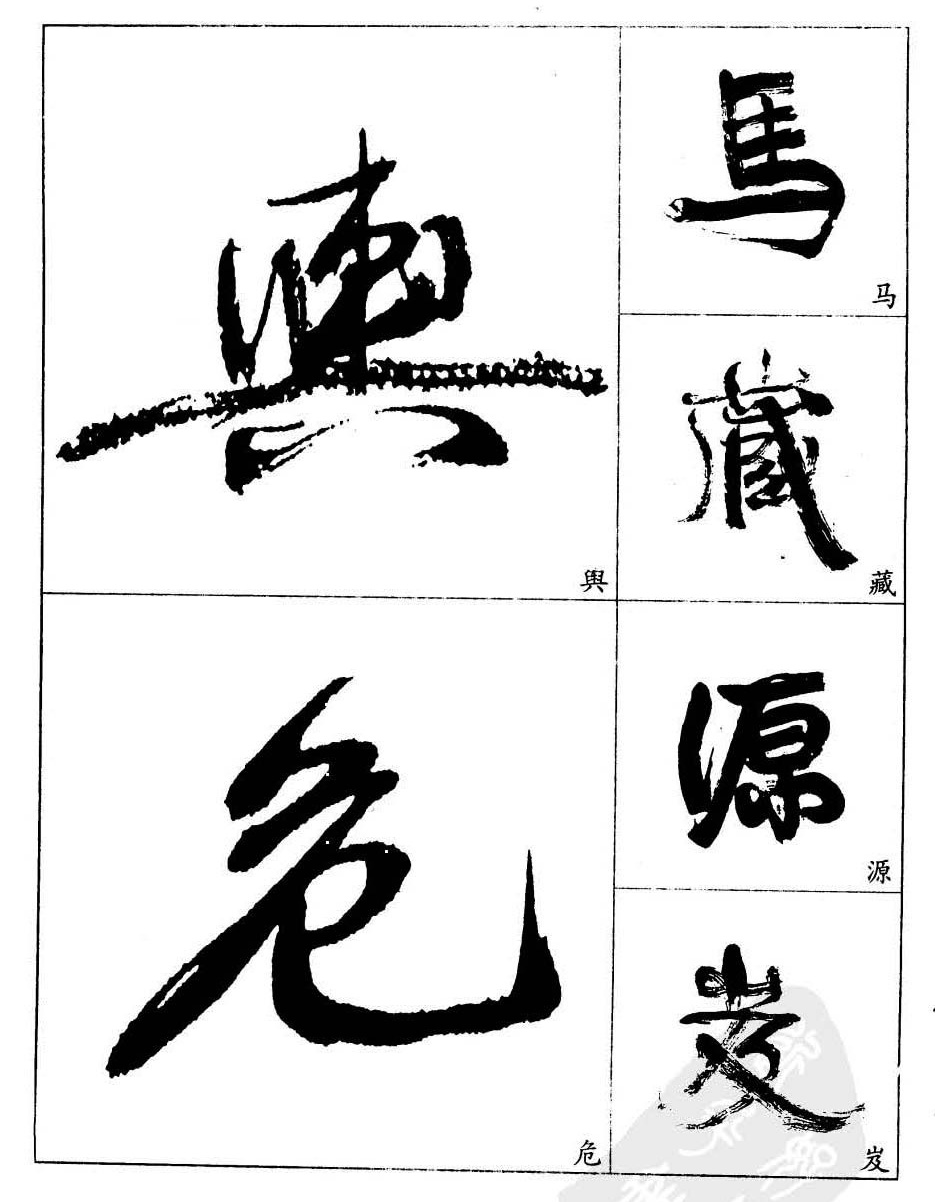 輿
舆
馬
马
藏
藏
危
危
源
源
岌
岌